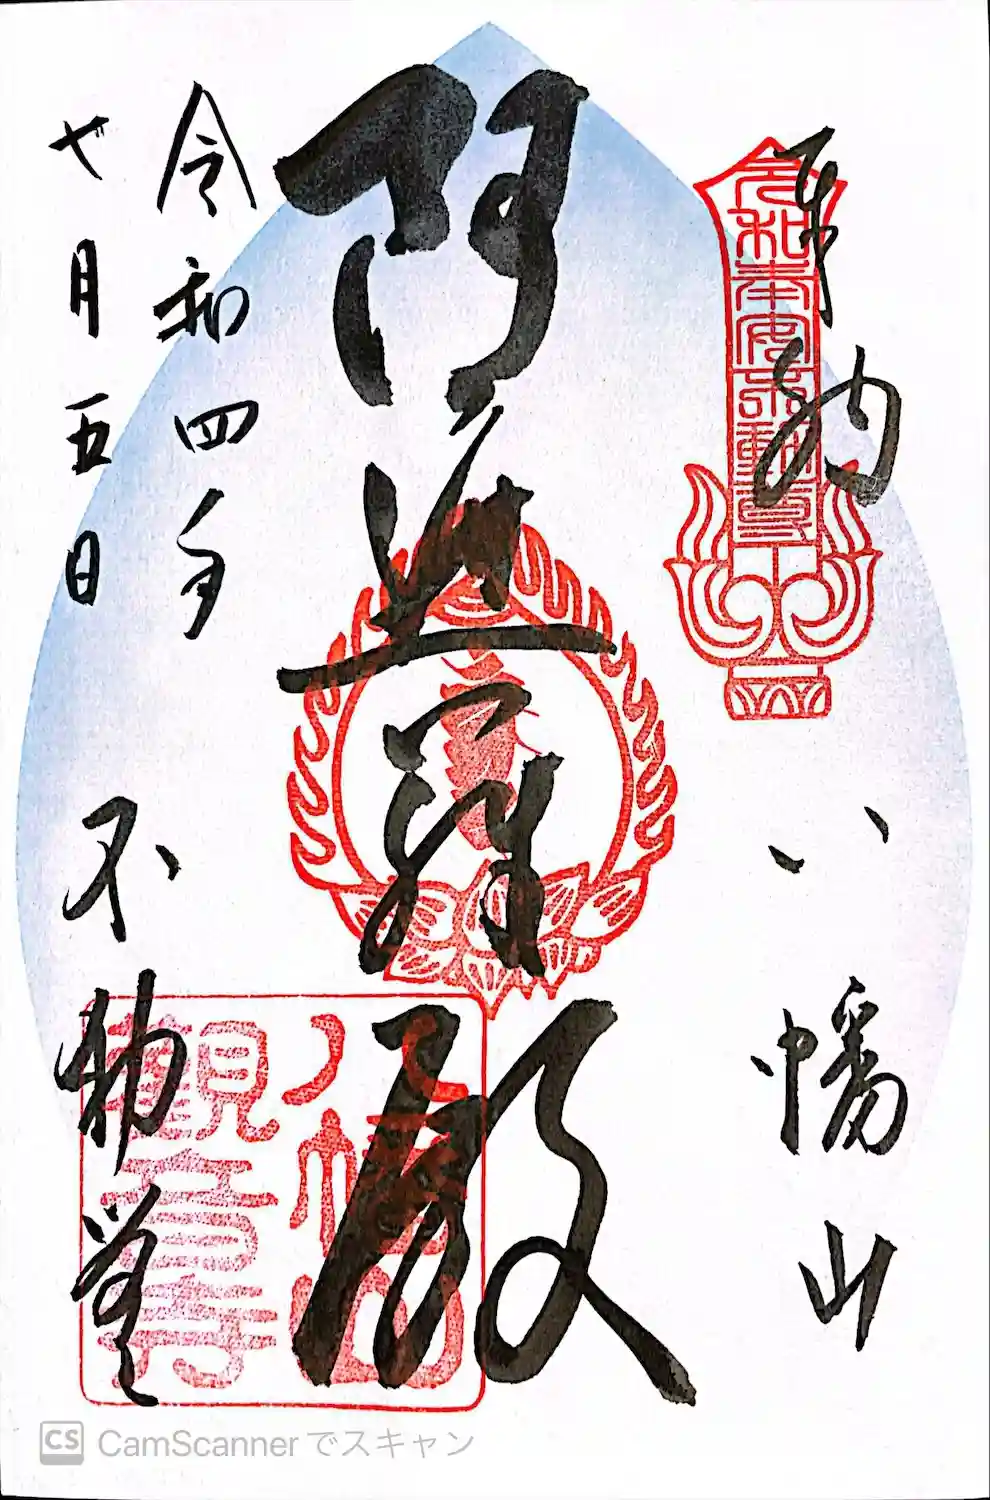 奉納
八幡山
阿遮羅殿
令和四年
七月五日
不動堂
八幡山
観音寺
CS CamScannerでスキャン